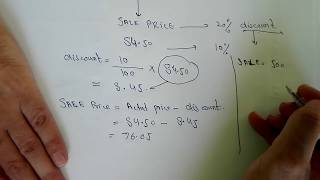 SALE PRICE → 20% discount
84.50 → 10%
discount = 10/100 × 84.50
= 8.45
SALE = 500
SALE Price = Actual price - discount.
= 84.50 - 8.45
= 76.05